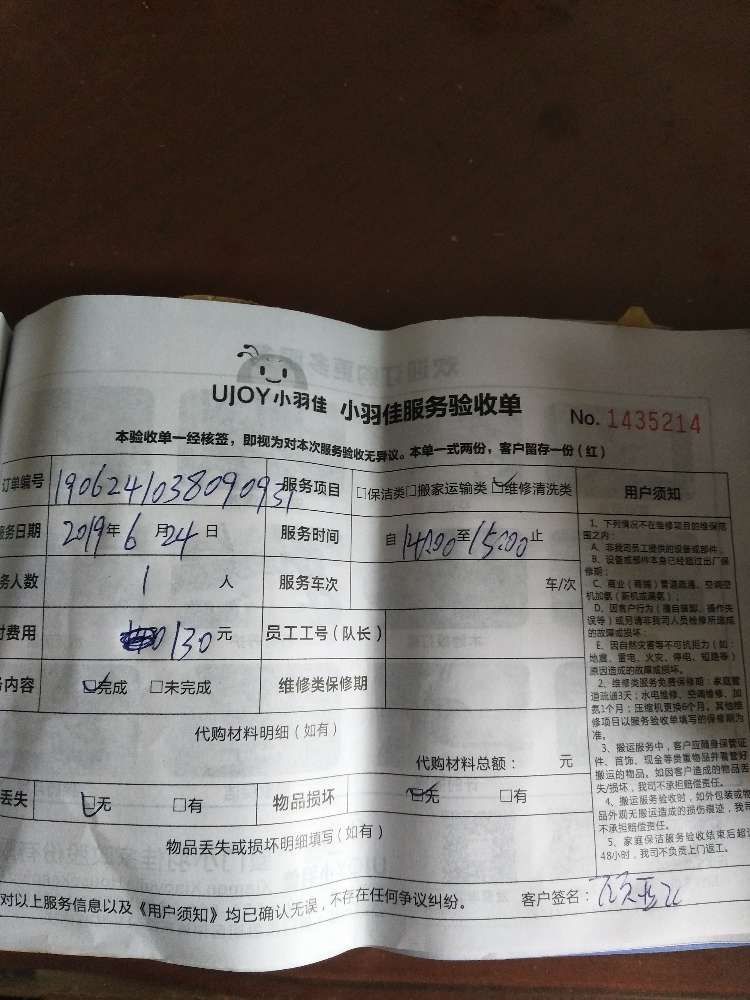 UJOY小羽佳 小羽佳服务验收单 No. 1435214
本验收单一经核签，即视为对本次服务验收无异议。本单一式两份，客户留存一份（红）
订单编号 服务项目 □保洁类□搬家运输类☑维修清洗类 用户须知
务日期 2019年6月24日 服务时间 自14:00至15:00止
务人数 1 人 服务车次 车/次
费用 130元 员工工号（队长）
内容 ☑完成 □未完成 维修类保修期
代购材料明细（如有）
代购材料总额： 元
丢失 ☑无 □有 物品损坏 ☑无 □有
物品丢失或损坏明细填写（如有）
对以上服务信息以及《用户须知》均已确认无误，不存在任何争议纠纷。 客户签名：
1、下列情况不在维修项目的维保范
围之内：
A、非我司员工提供的设备或部件；
B、设备或部件本身已经超过出厂保
修期；
C、商业（商铺）管道疏通、空调空
机加氨（新机或漏氨）；
D、因客户行为（擅自装卸、操作失
误等）或另请非我司人员检修所造成
的故障或损坏；
E、因自然灾害等不可抗拒力（如：
地震、雷电、火灾、停电、短路等）
原因造成的故障或损坏。
2、维修类服务免费保修期：家庭管
道疏通3天；水电维修、空调维修、加
氨1个月；压缩机更换6个月。其他维
修项目以服务验收单填写的保修期为
准。
3、搬运服务中，客户应随身保管证
件、首饰、现金等贵重物品并看管好
搬运的物品。如因客户造成的物品丢
失/损坏，我司不承担赔偿责任。
4、搬运服务验收时，如外包装或物
品外观无搬运造成的损伤痕迹，我司
不承担赔偿责任。
5、家庭保洁服务验收结束后超过
48小时，我司不负责上门返工。